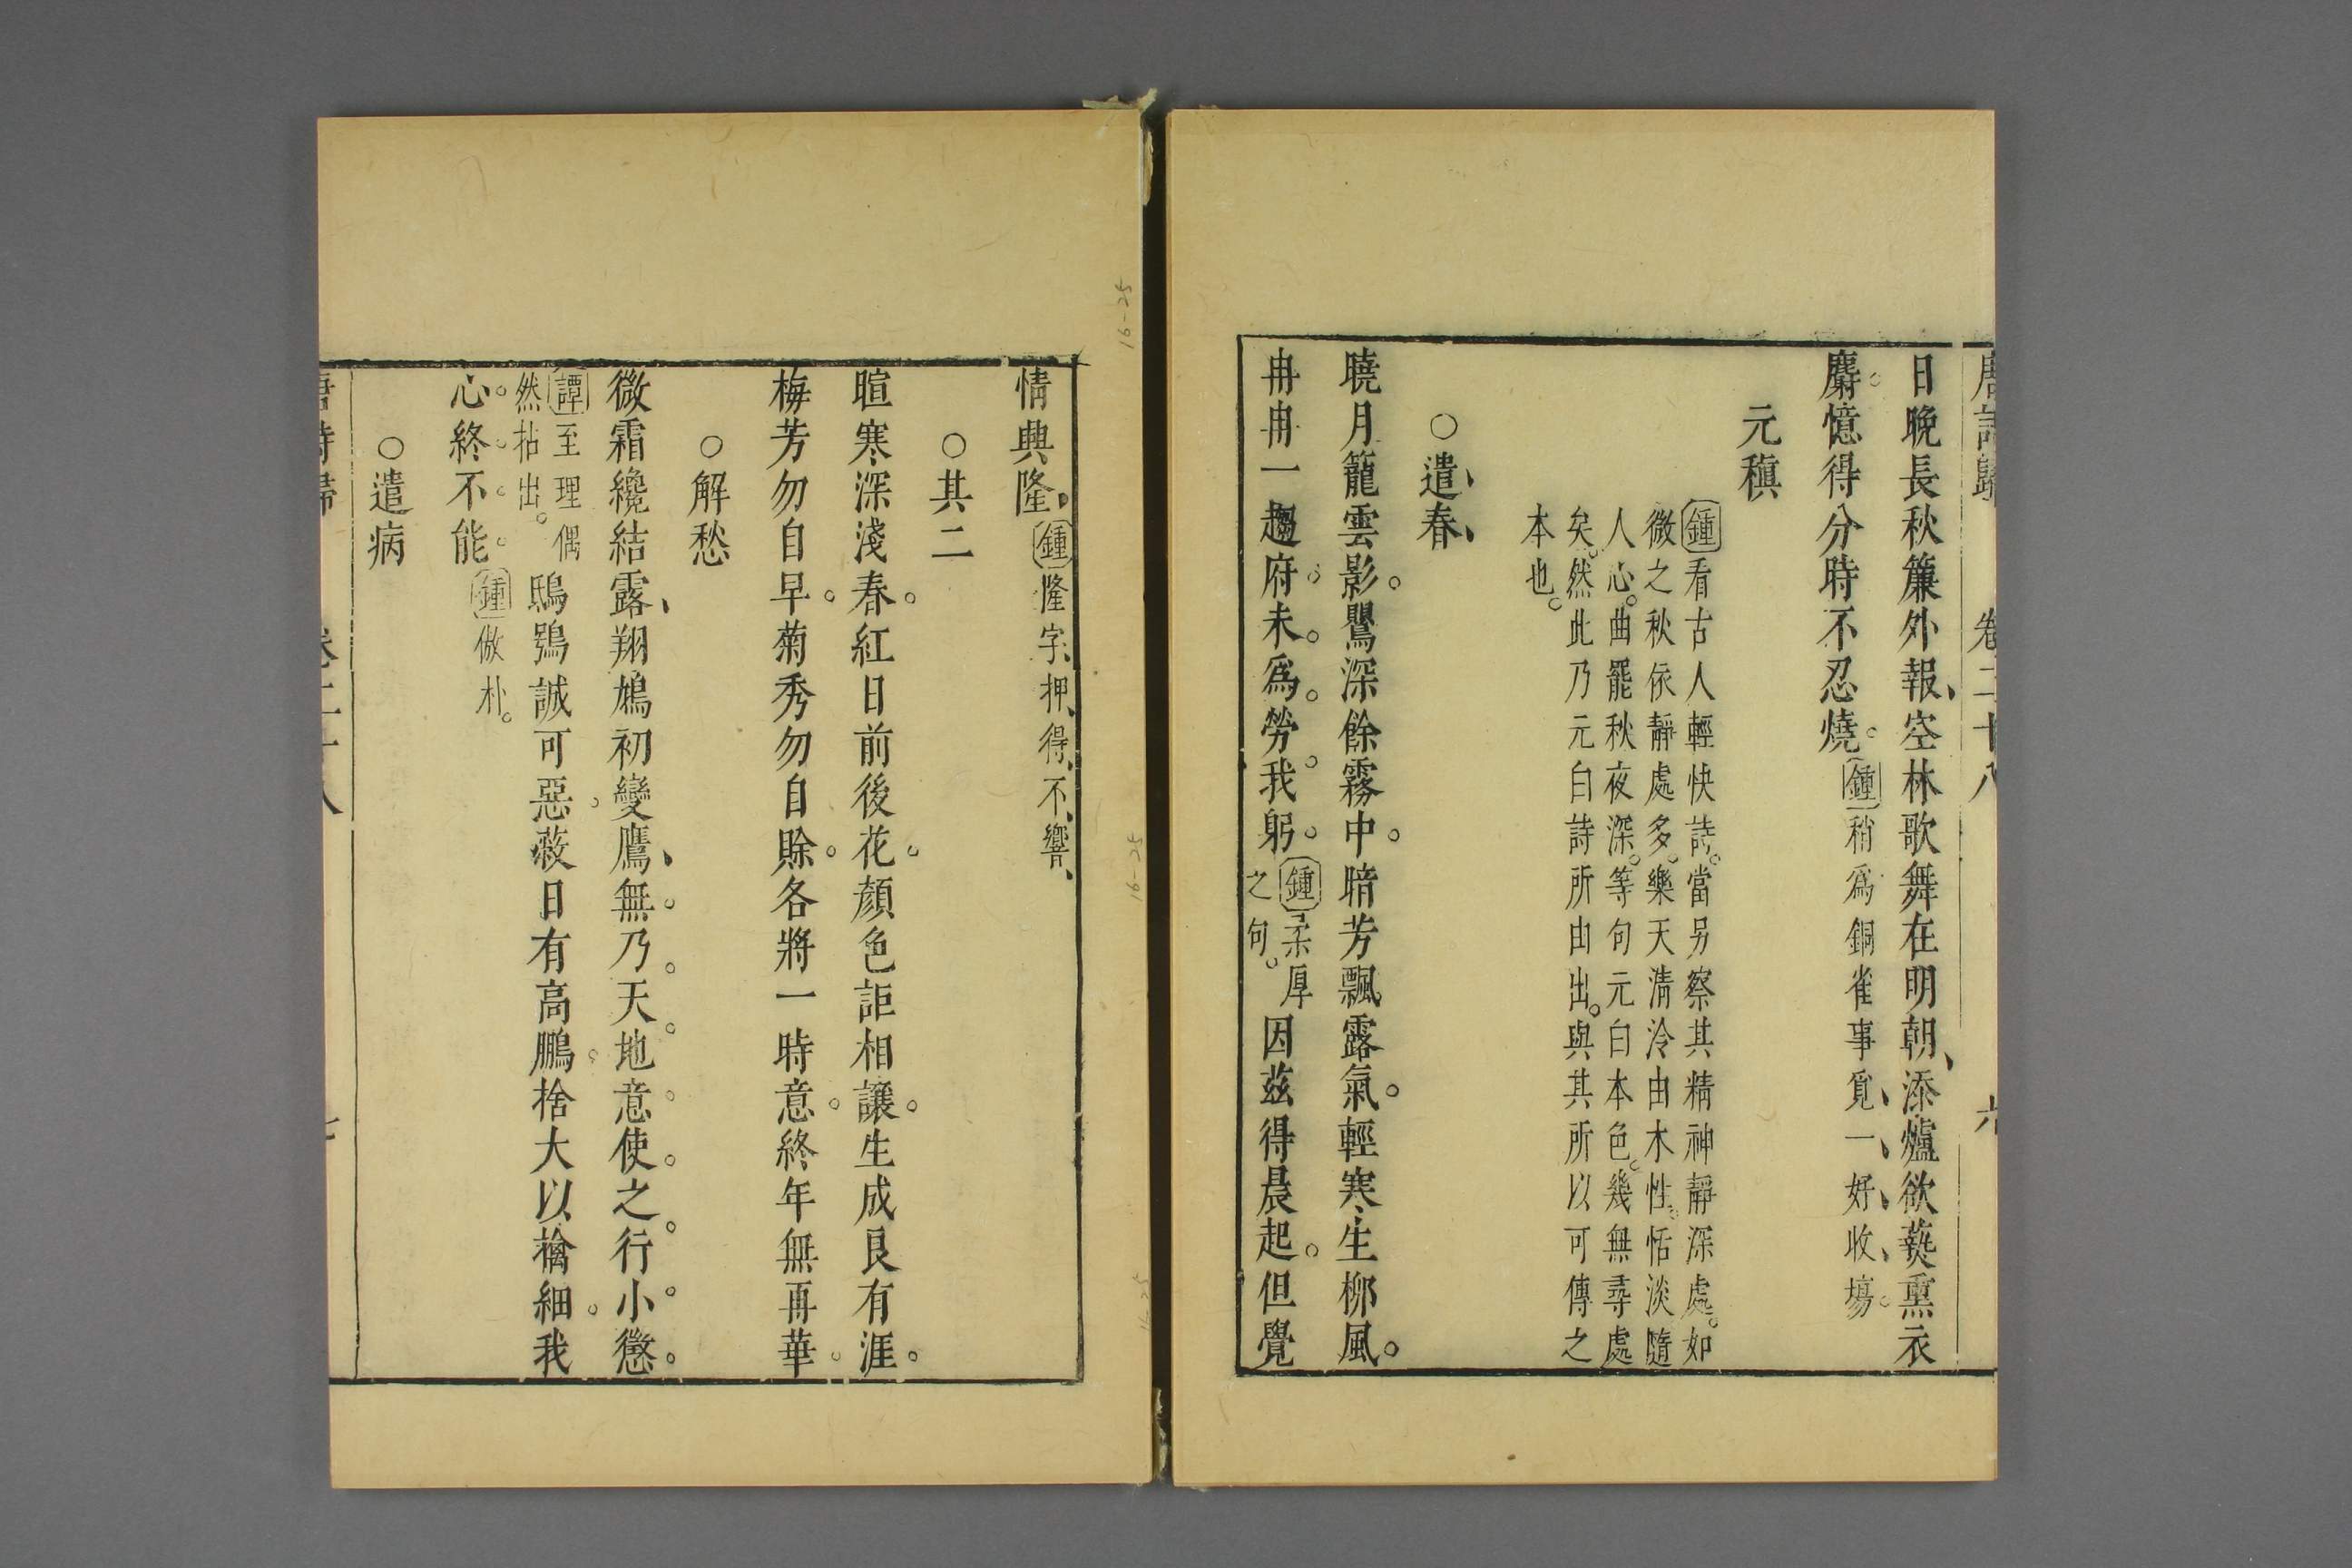 唐詩歸 卷二十八 六
日晚長秋簾外報空林歌舞在明朝添爐欲爇熏衣
麝憶得分時不忍燒鍾稍爲銅雀事覓一好收塲
元稹
鍾看古人輕快詩當另察其精神靜深處如
微之秋依靜處多樂天清泠由木性恬淡隨
人心曲罷秋夜深等句元白本色幾無尋處
矣然此乃元白詩所由出與其所以可傳之
本也
○遣春
曉月籠雲影鸎深餘霧中暗芳飄露氣輕寒生柳風
冉冉一趨府未爲勞我躬鍾柔厚之句因茲得晨起但覺
情興隆鍾隆字押得不響
○其二
暄寒深淺春紅日前後花顏色詎相讓生成良有涯
梅芳勿自早菊秀勿自賒各將一時意終年無再華
○解愁
微霜纔結露翔鳩初變鷹無乃天地意使之行小懲
譚至理偶然拈出鴟鴞誠可惡蔽日有高鵬捨大以擒細我
心終不能鍾倣朴
○遣病
唐詩歸 卷二十八 七
16-25
16-25
16-25